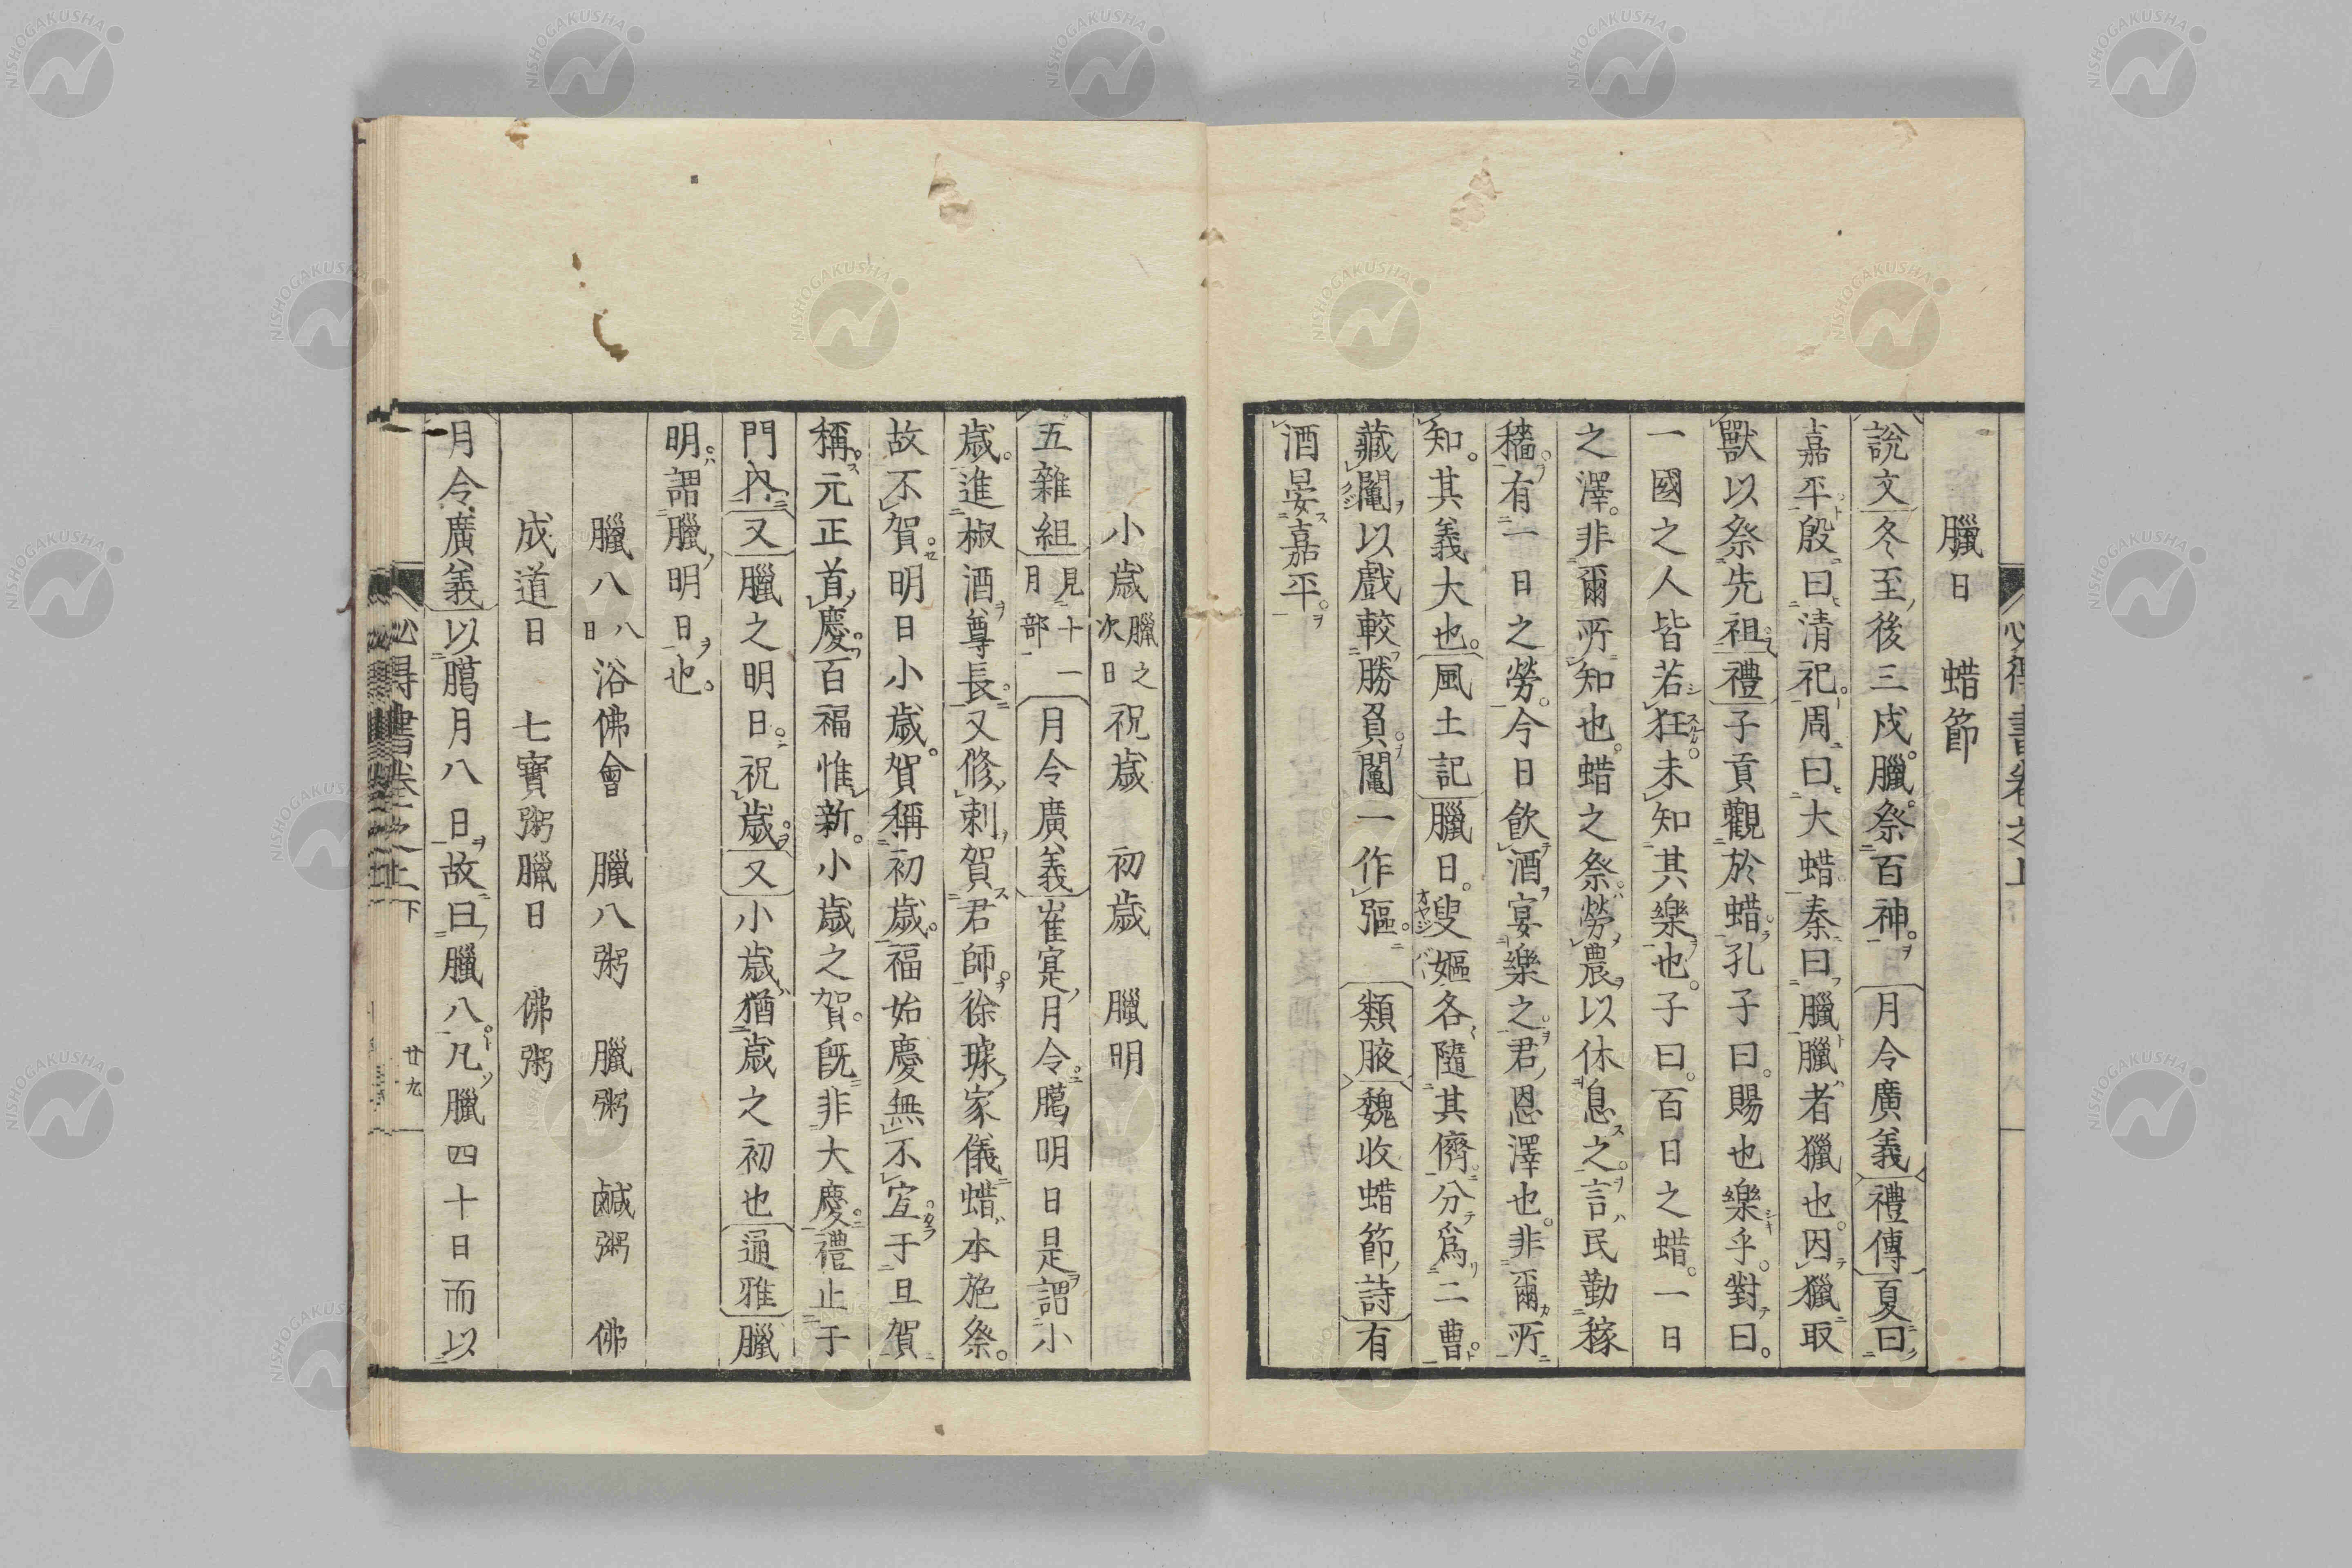 臘日　蜡節
說文冬至後三戌臘祭百神月令廣義禮傳夏曰
嘉平殷曰清祀周曰大蜡秦曰臘臘者獵也因獵取
獸以祭先祖禮子貢觀於蜡孔子曰賜也樂乎對曰
一國之人皆若狂未知其樂也子曰百日之蜡一日
之澤非爾所知也蜡之祭勞農以休息之言民勤稼
穡有一日之勞今日飲酒宴樂之君恩澤也非爾所
知其義大也風土記臘日叟嫗各隨其儕分爲二曹
藏鬮以戲較勝負鬮一作彄　類腋魏收蜡節詩有
酒晏嘉平
小歲臘之次日　祝歲　初歲　臘明
五雜組見十一月部月令廣義崔寔月令臈明日是謂小
歲進椒酒尊長又修刺賀君師徐璩家儀蜡本施祭
故不賀明日小歲賀稱初歲福始慶無不宜于旦賀
稱元正首慶百福惟新小歲之賀旣非大慶禮止于
門內又臘之明日祝歲又小歲猶歲之初也通雅臘
明謂臘明日也
臘八八日　浴佛會　臘八粥　臘粥　鹹粥　佛
成道日　七寶粥　臘日　佛粥
月令廣義以臈月八日故曰臘八凡臘四十日而以
必得書卷之上下　廿九
NISHOGAKUSHA